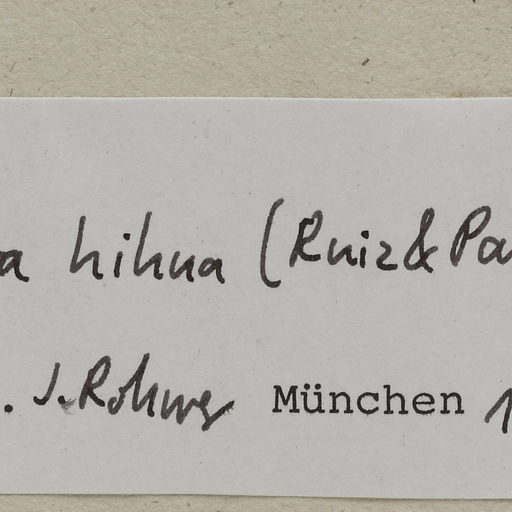 a hihua (Ruiz & Pa
. J. Rohwer München 1